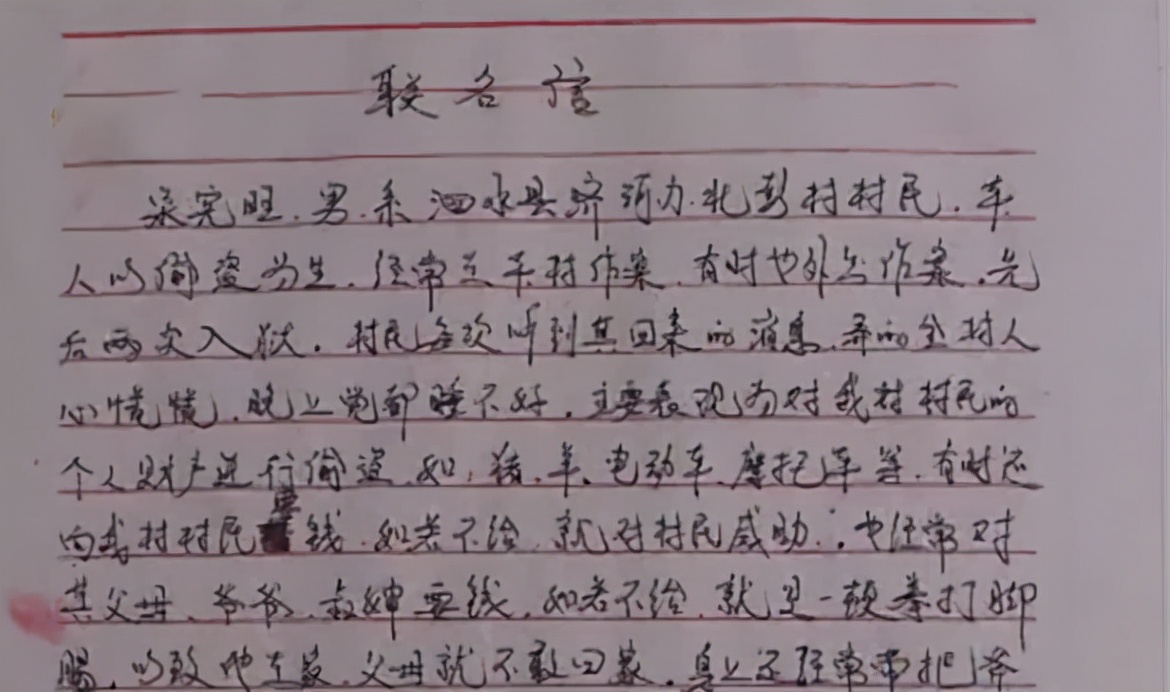 联名信
宪旺、男、系泗水县济河办北彭村村民、本
人以偷盗为生、经常在本村作案、有时也外出作案、先
后两次入狱。村民每次听到其回来的消息、弄的全村人
心慌慌、晚上觉都睡不好、主要表现为对我村村民的
个人财产进行偷盗、如：猪、羊、电动车、摩托车等、有时还
向我村村民要钱、如若不给、就对村民威胁、也经常对
其父母、爷爷、叔婶要钱、如若不给、就是一顿拳打脚
踢、以致他在家、父母就不敢回家、身上还经常带把斧